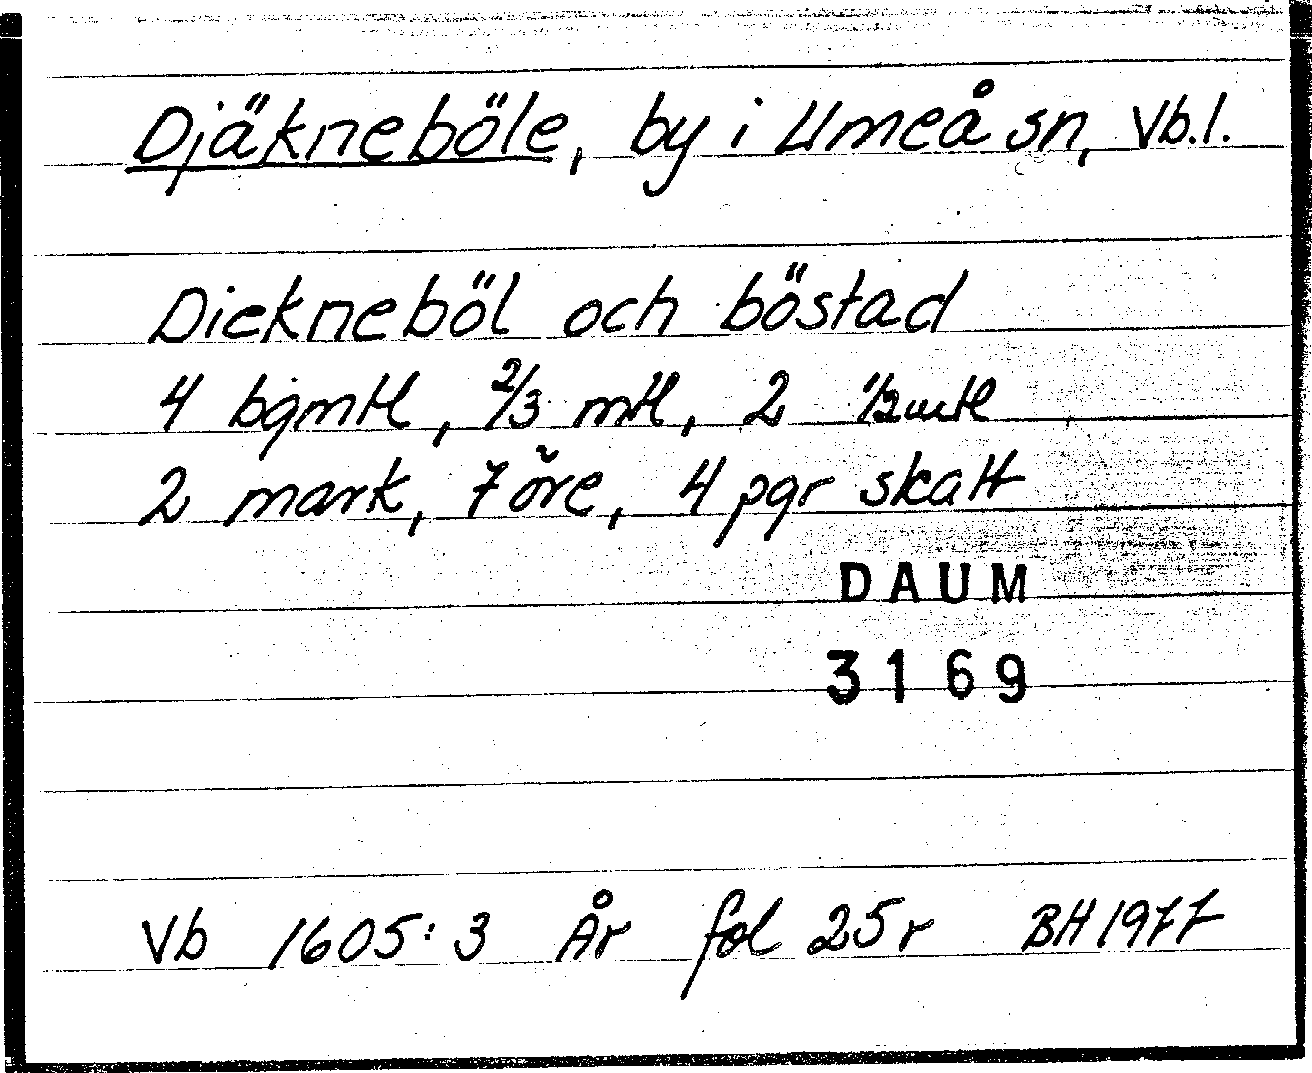 Djäkneböle, by i Umeå sn, Vb.l.
Diekneböl och böstad
4 bgmtl, 2/3 mtl, 2 1/2 mtl
2 mark, 7 öre, 4 pgr skatt
DAUM
3169
Vb 1605:3 År fol 25r BH 1977